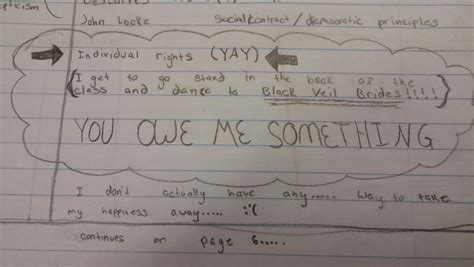 John Locke Social contract / democratic principles
Individual rights (YAY)
{I get to go stand in the back of the
class and dance to Black Veil Brides!!!!}
YOU OWE ME SOMETHING
I don't actually have any..... way to take
my happness away..... :'(
continues on page 6.....